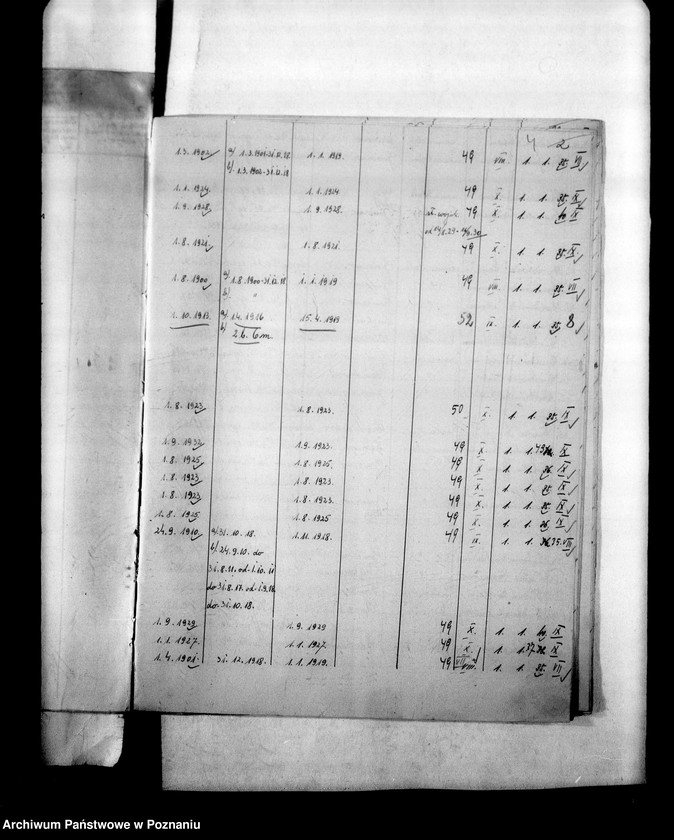 4 2
1.3.1902 a/ 1.3.1901-31.12.18 1.1.1919. 49 VIII. 1. 1. 25. VII
b/ 1.3.1902-31.12.18
1.1.1924. 1.1.1924 49 X. 1. 1. 25. IX
1.9.1928. 1.9.1928. 49 X. 1. 1. IX
1.8.1921. 1.8.1921. 49 X. 1. 1. 25. IX
1.8.1900 a/ 1.8.1900-31.12.18 1.1.1919 49 VIII. 1. 1. 25. VII
b/ "
1.10.1913. a/ 1.4.1916 15.4.1919 52 IX. 1. 1. 25 8
b/ 2 b. 6 m.
1.8.1923 1.8.1923. 50 X 1. 1. 25. IX
1.9.1932 1.9.1923. 49 X. 1. IX
1.8.1925 1.8.1925. 49 X. 1. 1. 26. IX
1.8.1923 1.8.1923. 49 X. 1. 1. 25. IX
1.8.1923 1.8.1923. 49 X. 1. 1. 25. IX
1.8.1925 1.8.1925 49 X. 1. 1. 26. IX
24.9.1910 a/ 31.10.18. 1.11.1918. 49 IX. 1. 35. VIII
b/ 24.9.10. do
31.8.11. od 1.10.11
do 31.8.17. od 1.9.18
do 31.10.18.
1.9.1929 1.9.1929 49 X. 1. 1. IX
1.1.1927. 1.1.1927. 49 X. 1. 1. 37. IX
1.4.1901. 31.12.1918. 1.1.1919. 49 VIII. 1. 1. 25. VII
Archiwum Państwowe w Poznaniu